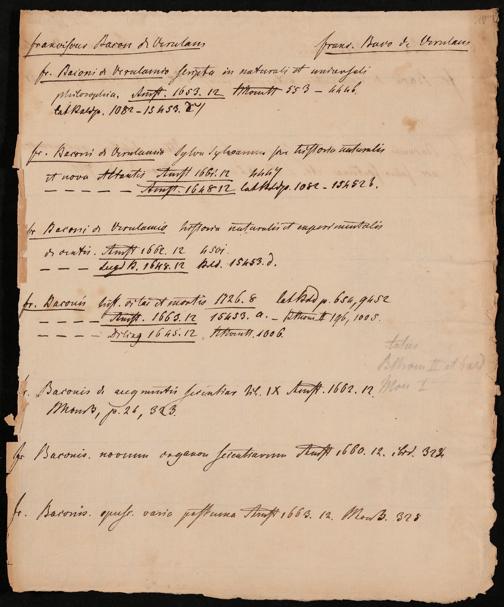 franciscus Bacon de Verulam frans. Baco de Verulam
fr. Baconi de Verulamio scripta in naturali et universali
philosophia. Amst. 1653. 12 553 – 4446.
cat Bald p. 1082 – 15453.
fr. Baconi de Verulamio Sylva Sylvarum sive historia naturalis
et nova Atlantis Amst. 1661. 12 4447
– – – – Amst. 1648 12 cat Bald p. 1082 – 15452 b.
fr. Baconi de Verulamio historia naturalis et experimentalis
de ventis. Amst 1662. 12 4501.
– – – – Lugd B. 1648. 12 Bald. 15453. d.
fr. Baconis hist. vitae et mortis 1726. 8 cat Bald p. 654, 9452
– – – – Amst. 1663. 12 15453. a. – 196, 1005.
– – – – Diling 1645. 12 1006.
et Bald
Mon I
fr. Baconis de augmentis scientiar lib. IX Amst. 1662. 12
MonB, p. 26, 323.
fr Baconis. novum organon scientiarum Amst 1660. 12. 324
fr. Baconis. opusc. varia posthuma Amst 1663. 12. MonB. 325